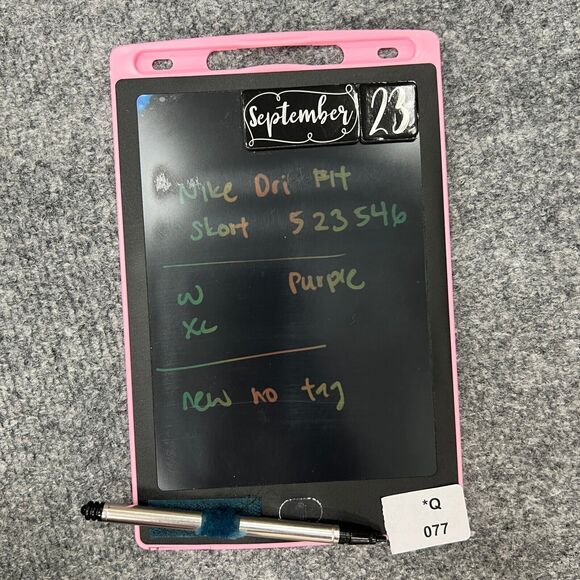 September 23
Nike Dri Fit
Skort 523546
W Purple
XL
new no tag
*Q
077